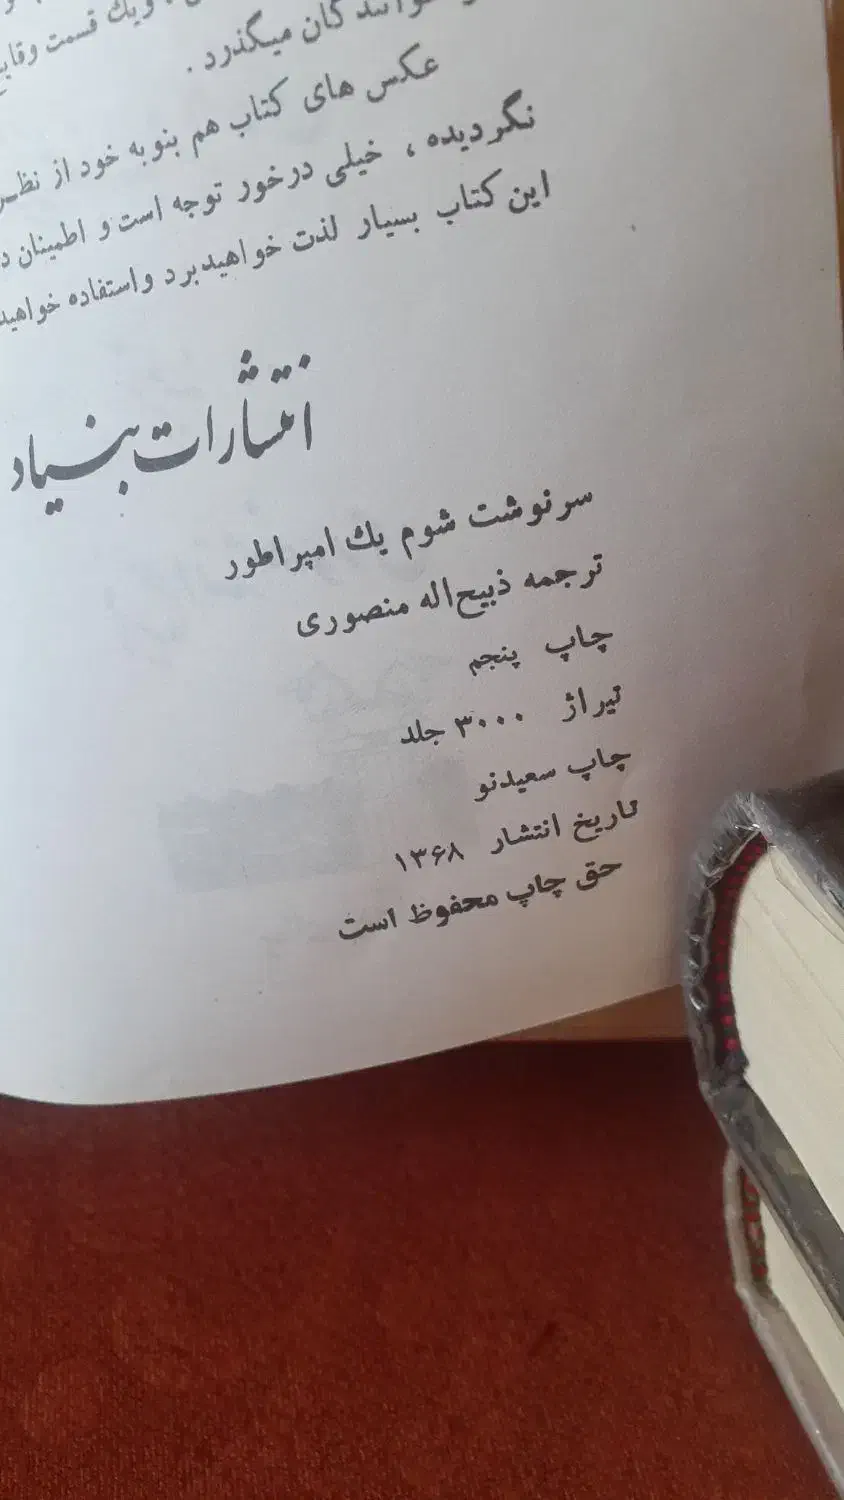 ویك قسمت وقایع
گان میگذرد .
عکس های کتاب هم بنوبه خود از نظر
نگردیده ، خیلی درخور توجه است و اطمینان
این کتاب بسیار لذت خواهیدبرد واستفاده خواهید
انتشارات بنیاد
سرنوشت شوم یك امپراطور
ترجمه ذبیح‌اله منصوری
چاپ پنجم
تیراژ ۳۰۰۰ جلد
چاپ سعیدنو
تاریخ انتشار ۱۳۶۸
حق چاپ محفوظ است